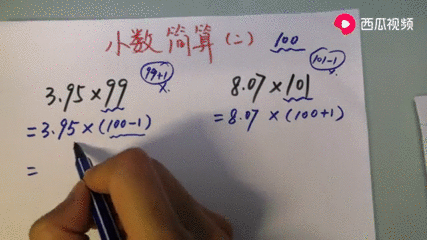 西瓜视频
小数简算(二) 100
99+1
101-1
3.95×99
8.07×101
=3.95×(100-1)
=8.07×(100+1)
=